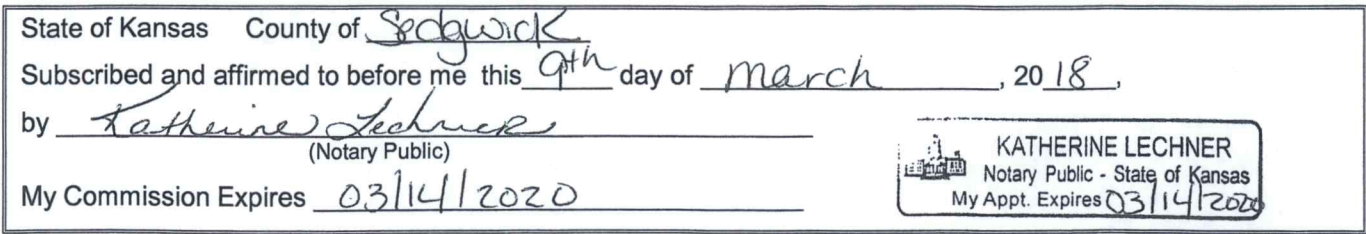 State of Kansas County of Sedgwick
Subscribed and affirmed to before me this 9th day of March, 2018,
by Katherine Lechner
(Notary Public)
My Commission Expires 03/14/2020
KATHERINE LECHNER
Notary Public - State of Kansas
My Appt. Expires 03/14/2020